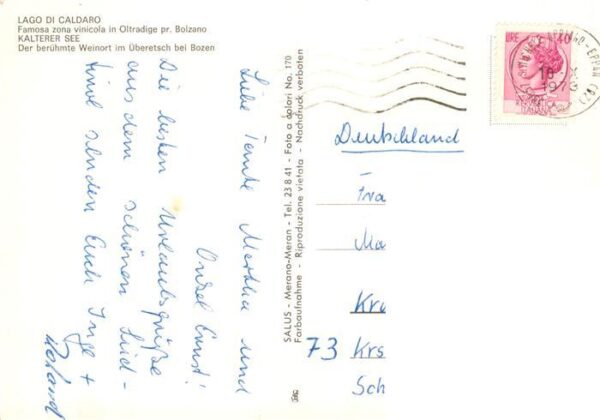 LAGO DI CALDARO
Famosa zona vinicola in Oltradige pr. Bolzano
KALTERER SEE
Der berühmte Weinort im Überetsch bei Bozen
Liebe Tante Martha und
Onkel Ernst!
Die besten Urlaubsgrüße
aus dem schönen Süd-
tirol senden Euch Inge +
Roland
SALUS - Merano-Meran - Tel. 23 8 41 - Foto a colori No. 170
Farbaufnahme - Riproduzione vietata - Nachdruck verboten
LIRE 40
APPIANO - EPPAN (BZ)
18
197
Deutschland
Fra
Ma
Kru
73 Krs
Sch